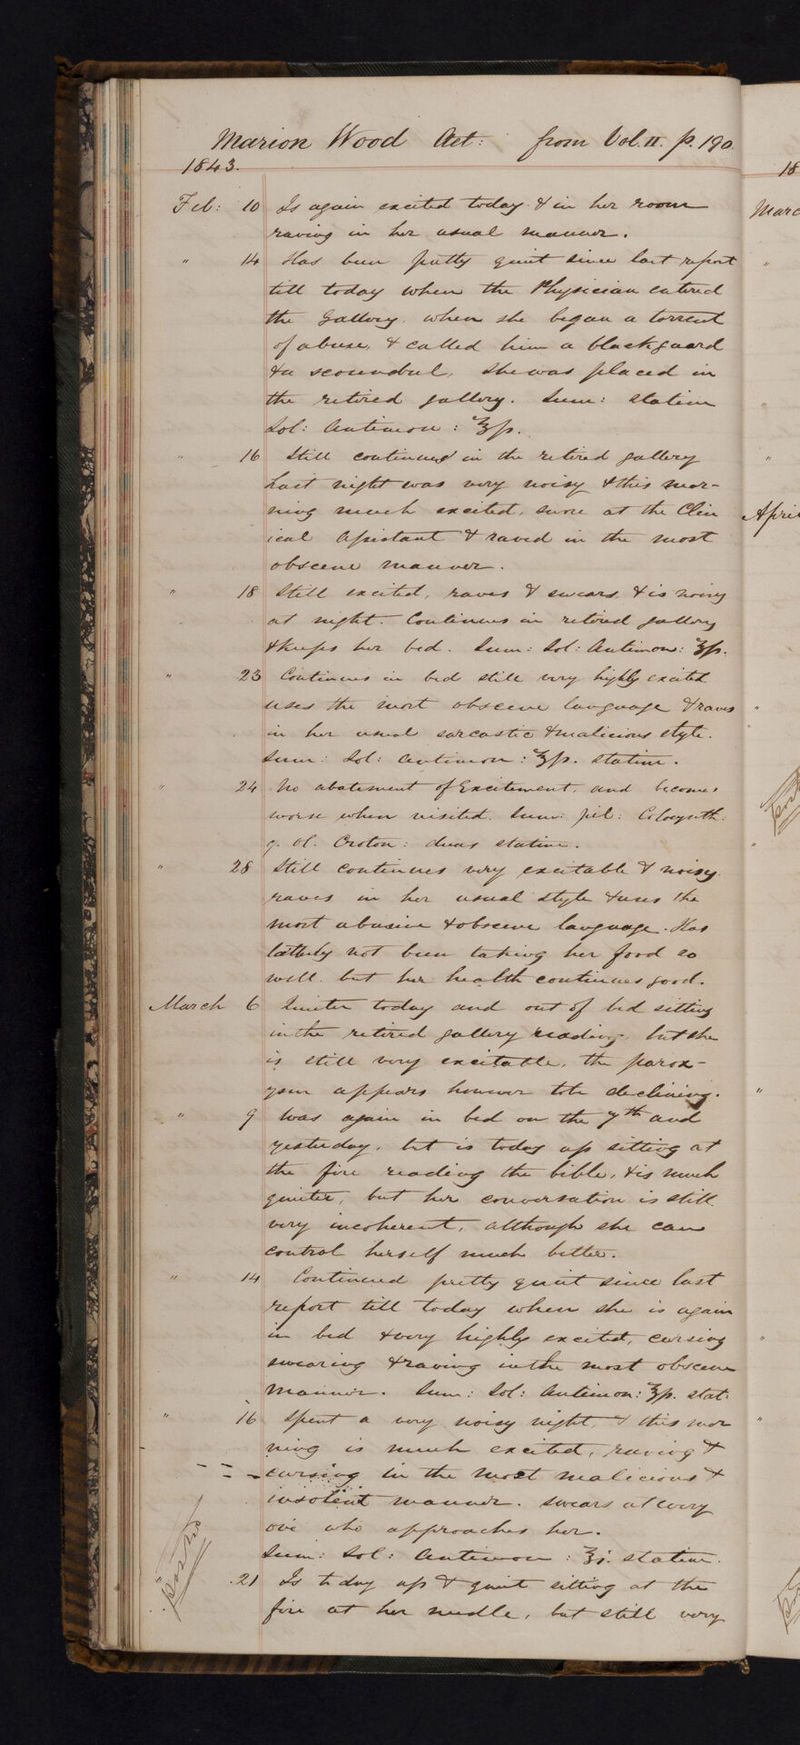 Marion Wood Aet: from Vol. II. p. 190
1843.
Feb: 10 Is again excited today & in her room
raving in her usual manner.
" 14 Has been pretty quiet since last report
till today when the Physician entered
the Gallery. when she began a torrent
of abuse, & called him a blackguard
& a scoundrel, she was placed in
the retired gallery. Sum: statim
Sol: Antimon: ℥fs.
" 16 Still continued in the retired gallery
Last night was very noisy & this mor-
ning much excited, swore at the Clin
ical Assistant & raved in the most
obscene manner.
" 18 Still excited, raves & swears & is noisy
at night. Continues in retired gallery
& keeps her bed. Sum: Sol: Antimon: ℥fs.
" 23 Continues in bed still very highly excited
uses the most obscene language & raves
in her usual sarcastic & malicious style.
Sum: Sol: Antimon: ℥fs. statim.
" 24 No abatement of Excitement, and becomes
worse when visited. Sum: pil: Colocynth:
Ol. Croton: duas statim.
" 28 Still continues very excitable & noisy
raves in her usual style & uses the
most abusive & obscene language. Has
lately not been taking her food so
well. but her health continues good.
March 6 Quieter today and out of bed sitting
in the retired gallery reading, but she
is still very excitable, the parox-
ysm appears however to be declining.
" 9 Was again in bed on the 7th and
yesterday, but is today up sitting at
the fire reading the bible, & is much
quieter, but her conversation is still
very incoherent, although she can
control herself much better.
" 14 Continued pretty quiet since last
report till today when she is again
in bed & very highly excited, cursing
swearing & raving in the most obscene
manner. Sum: Sol: Antimon: ℥fs. stat:
" 16 Spent a very noisy night, & this mor
ning is much excited, raving &
cursing in the most malicious &
insolent manner. swears at every
one who approaches her.
Sum: Sol: Antimon: ℥i. statim.
" 21 Is today up & quiet sitting at the
fire at her needle, but still very
18
Marc
April